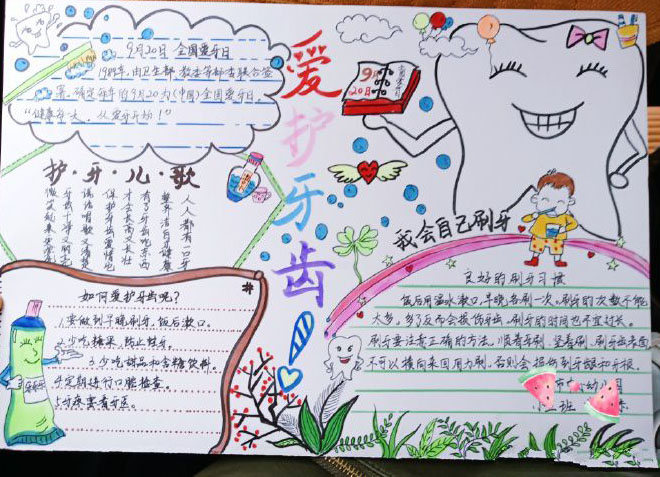 9月20日 全国爱牙日
1989年,由卫生部 教委等部委联合签
署,确定每年的9月20为(中国)全国爱牙日。
爱护牙齿
9月
20日
护·牙·儿·歌
人人都有一口牙
整齐洁白
有了牙齿吃东西
才会长高又长壮
保护牙齿
我会自己刷牙
良好的刷牙习惯
饭后用温水漱口,早晚各刷一次,刷牙的次数不能
太多,多了反而会损伤牙齿,刷牙的时间也不宜过长。
刷牙要注意正确的方法,顺着牙刷,竖着刷,刷牙齿表面
不可以横向来回用力刷,否则会损伤牙龈和牙根。
幼儿园
小二班
如何爱护牙齿呢?
1.要做到早晚刷牙,饭后漱口。
2.少吃糖果,防止蛀牙。
3.少吃甜品和含糖饮料。
4.定期进行口腔检查。
5.牙疼要看牙医。